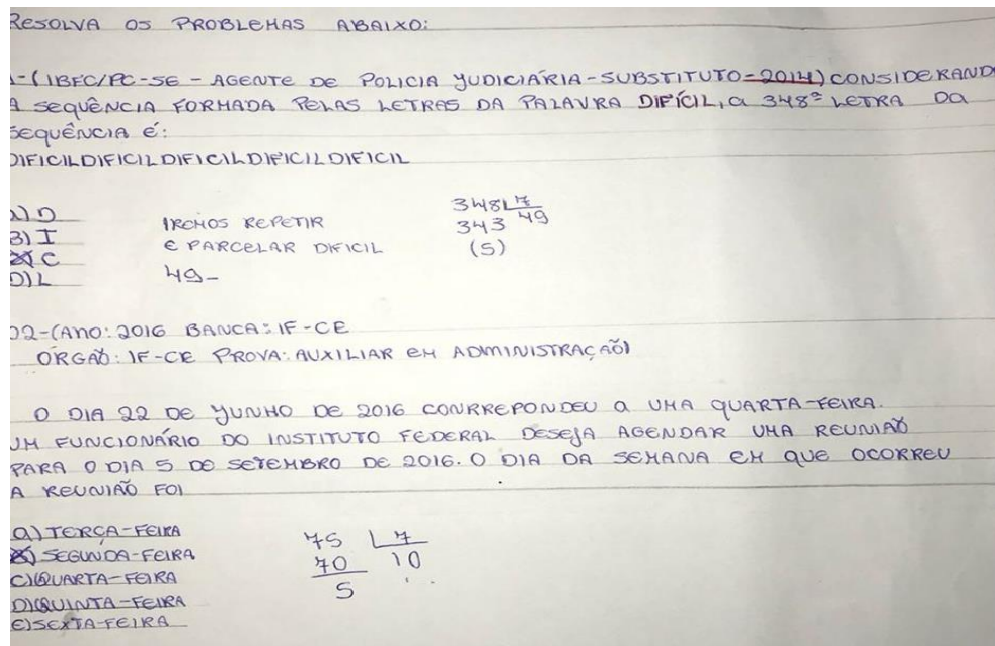 RESOLVA OS PROBLEMAS ABAIXO:
1-(IBFC/PC-SE - AGENTE DE POLICIA JUDICIÁRIA-SUBSTITUTO-2014) CONSIDERAND
A SEQUÊNCIA FORMADA PELAS LETRAS DA PALAVRA DIFÍCIL, a 348ª LETRA DA
SEQUÊNCIA É:
DIFICILDIFICILDIFICILDIFICILDIFICIL
A) D
B) I
C) C
D) L
IREMOS REPETIR
E PARCELAR DIFICIL
49-
348 7
343 49
(5)
02-(Ano: 2016 BANCA: IF-CE
ÓRGAÕ: IF-CE PROVA: AUXILIAR EM ADMINISTRAÇAÕ)
O DIA 22 DE JUNHO DE 2016 CONRREPONDEU a UMA QUARTA-FEIRA.
UM FUNCIONÁRIO DO INSTITUTO FEDERAL DESEJA AGENDAR UMA REUNIAÕ
PARA O DIA 5 DE SETEMBRO DE 2016. O DIA DA SEMANA EM que OCORREU
A REUNIAÕ FOI
a) TERÇA-FEIRA
B) SEGUNDA-FEIRA
C) QUARTA-FEIRA
D) QUINTA-FEIRA
E) SEXTA-FEIRA
75 7
70 10
5